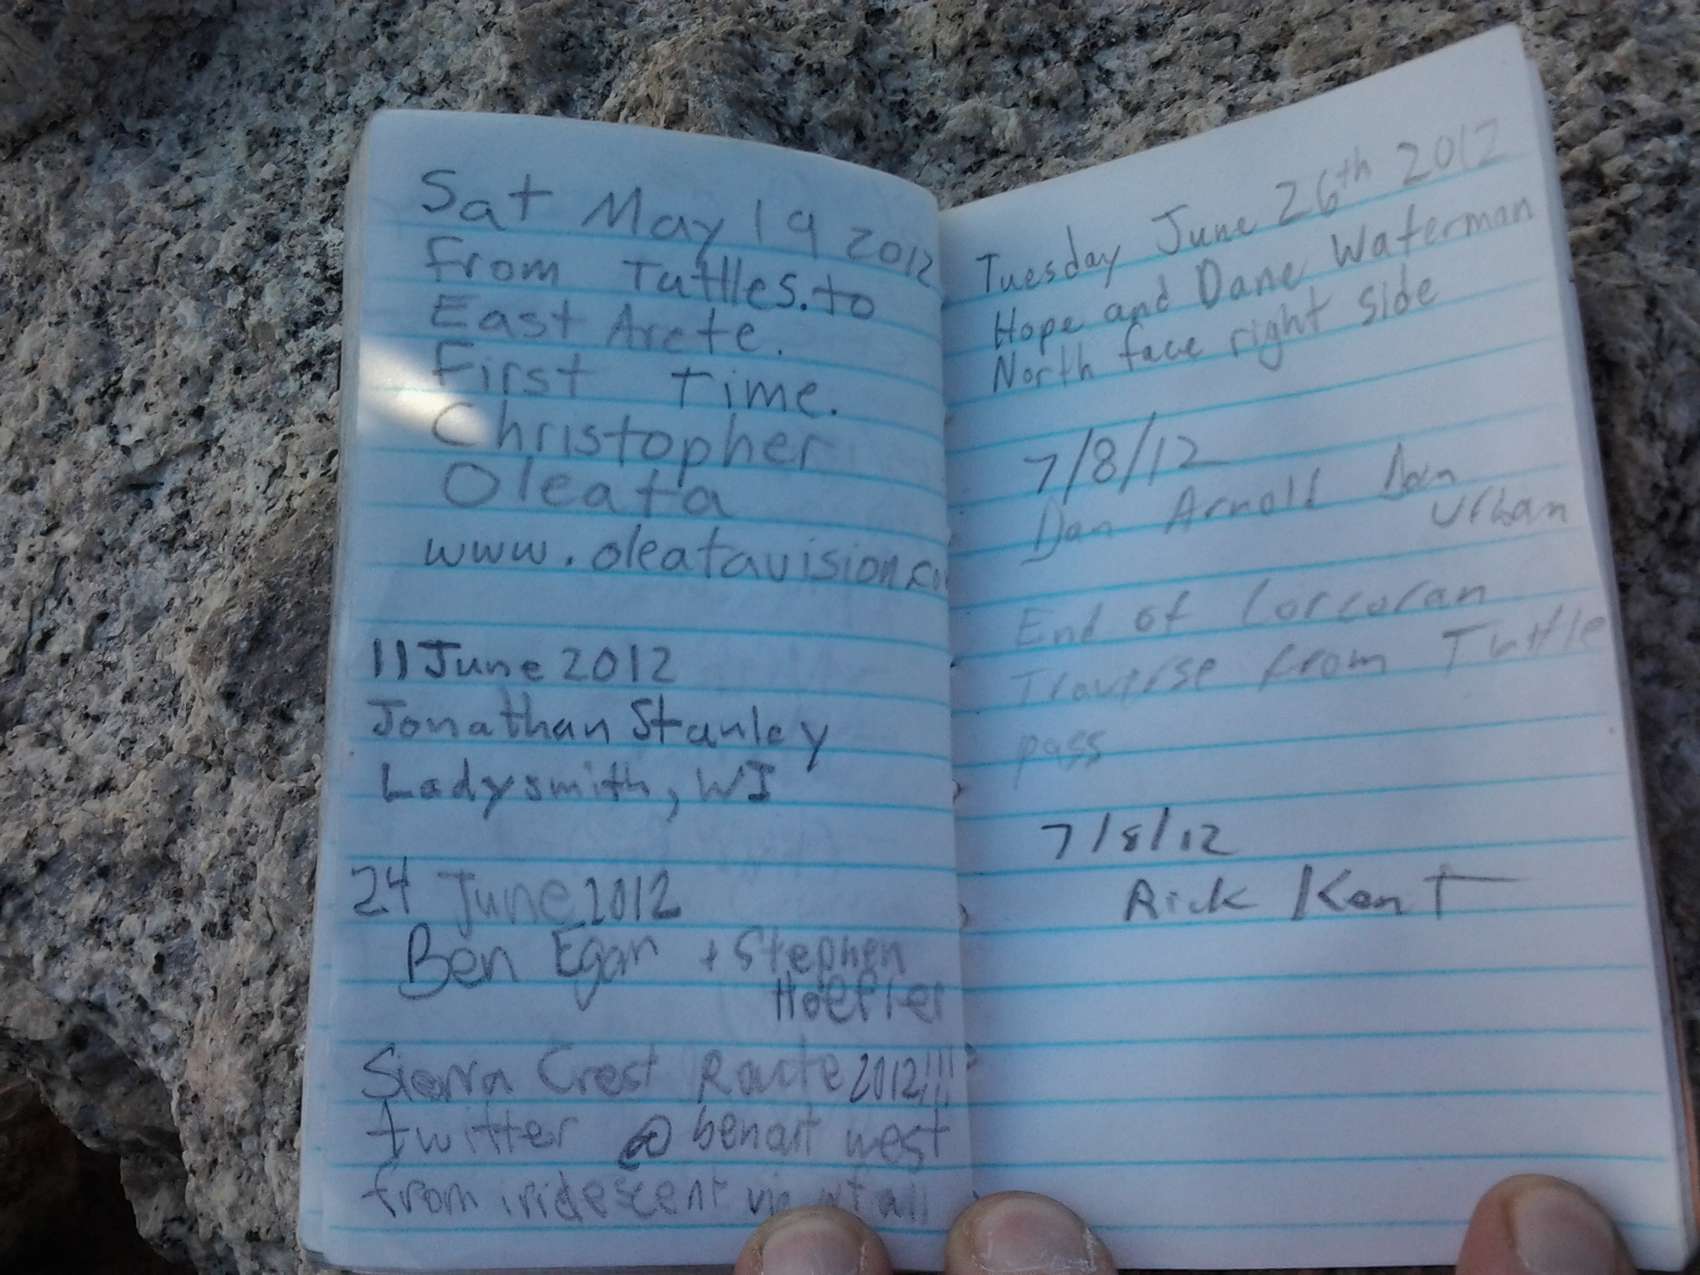 Sat May 19 2012
From Tuttles. to
East Arete.
First Time.
Christopher
Oleata
www.oleatavision.co
11 June 2012
Jonathan Stanley
Ladysmith, WI
24 June 2012
Ben Egan + Stephen
Hoffler
Sierra Crest Route 2012!!!
twitter @ benart west
from iridescent via
Tuesday June 26th 2012
Hope and Dane Waterman
North face right side
7/8/12
Dan Arnold Dan
Urban
End of Corcoran
Traverse from Tuttle
pass
7/8/12
Rick Kent